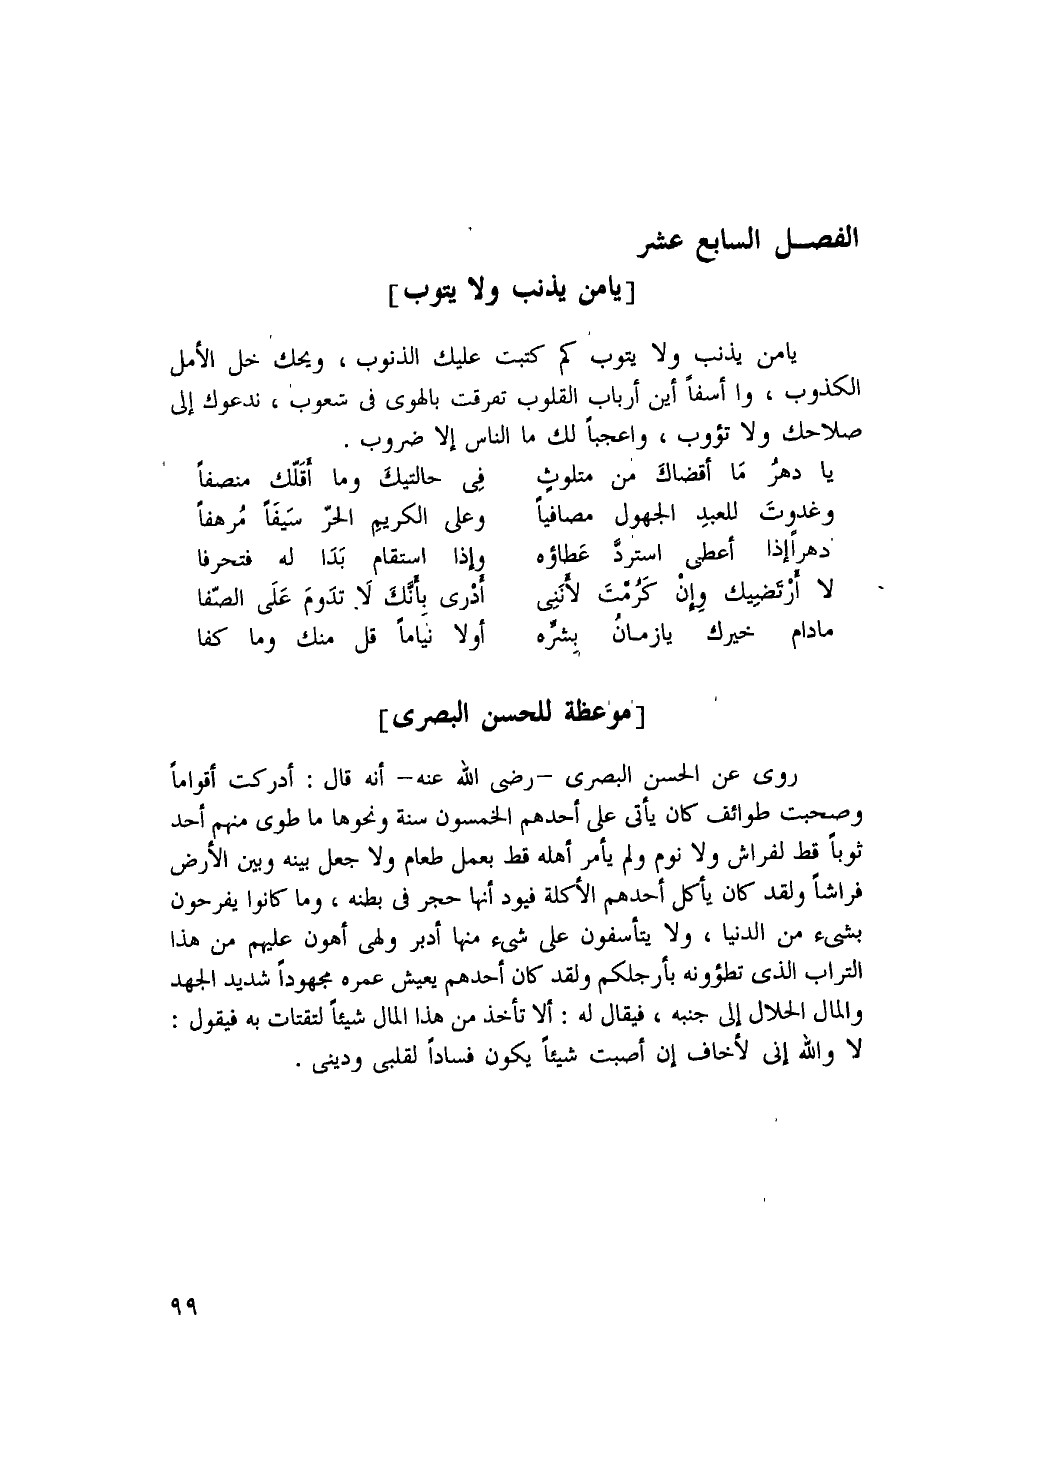 الفصل السابع عشر
[يامن يذنب ولا يتوب]
يامن يذنب ولا يتوب كم كتبت عليك الذنوب ، ويحك خل الأمل
الكذوب ، وا أسفاً أين أرباب القلوب تفرقت بالهوى فى شعوب ، ندعوك إلى
صلاحك ولا تؤوب ، واعجباً لك ما الناس إلا ضروب .
يا دهرُ مَا أقضاكَ مَن متلوثٍ فِى حالتيكَ وما أَقَلّك منصفاً
وغدوتَ للعبدِ الجهول مصافياً وعلى الكريمِ الحرّ سَيفَاً مُرهفاً
دهراًإذا أعطى استردَّ عَطاؤه وإذا استقام بَدَا له فتحرفا
لا أَرْتَضِيك وإِنْ كَرُمْتَ لأَنَنِى أَدْرى بِأَنَّكَ لَا تدَومَ عَلَى الصّفا
مادام خيرك يازمانُ بِشرِّه أولا نياماً قل منك وما كفا
[موعظة للحسن البصرى]
روى عن الحسن البصرى –رضى الله عنه– أنه قال : أدركت أقواماً
وصحبت طوائف كان يأتى على أحدهم الخمسون سنة ونحوها ما طوى منهم أحد
ثوباً قط لفراش ولا نوم ولم يأمر أهله قط بعمل طعام ولا جعل بينه وبين الأرض
فراشاً ولقد كان يأكل أحدهم الأكلة فيود أنها حجر فى بطنه ، وما كانوا يفرحون
بشىء من الدنيا ، ولا يتأسفون على شىء منها أدبر ولهى أهون عليهم من هذا
التراب الذى تطؤونه بأرجلكم ولقد كان أحدهم يعيش عمره مجهوداً شديد الجهد
والمال الحلال إلى جنبه ، فيقال له : ألا تأخذ من هذا المال شيئاً لتقتات به فيقول :
لا والله إنى لأخاف إن أصبت شيئاً يكون فساداً لقلبى ودينى .
٩٩